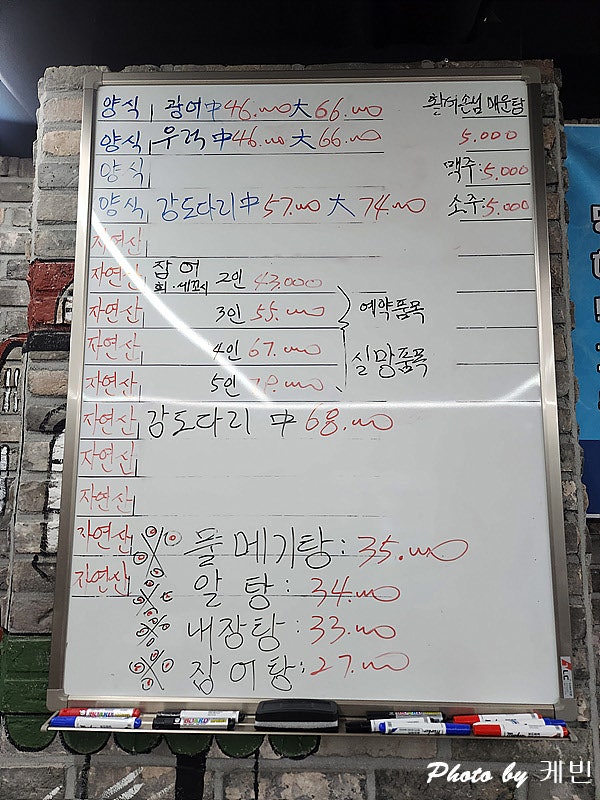 양식 광어 中 46.000 大 66.000
양식 우럭 中 46.000 大 66.000
양식
양식 강도다리 中 57.000 大 74.000
자연산
자연산 잡어 회·세꼬시 2인 43,000
자연산 3인 55.000
자연산 4인 67.000
자연산 5인 78.000
예약품목
실망품목
자연산 강도다리 中 68.000
자연산
자연산
자연산 ※ 물메기탕: 35.000
자연산 ※ 알탕: 34.000
※ 내장탕: 33.000
※ 잡어탕: 27.000
활어손님 매운탕
5.000
맥주: 5.000
소주: 5.000
Photo by 케빈